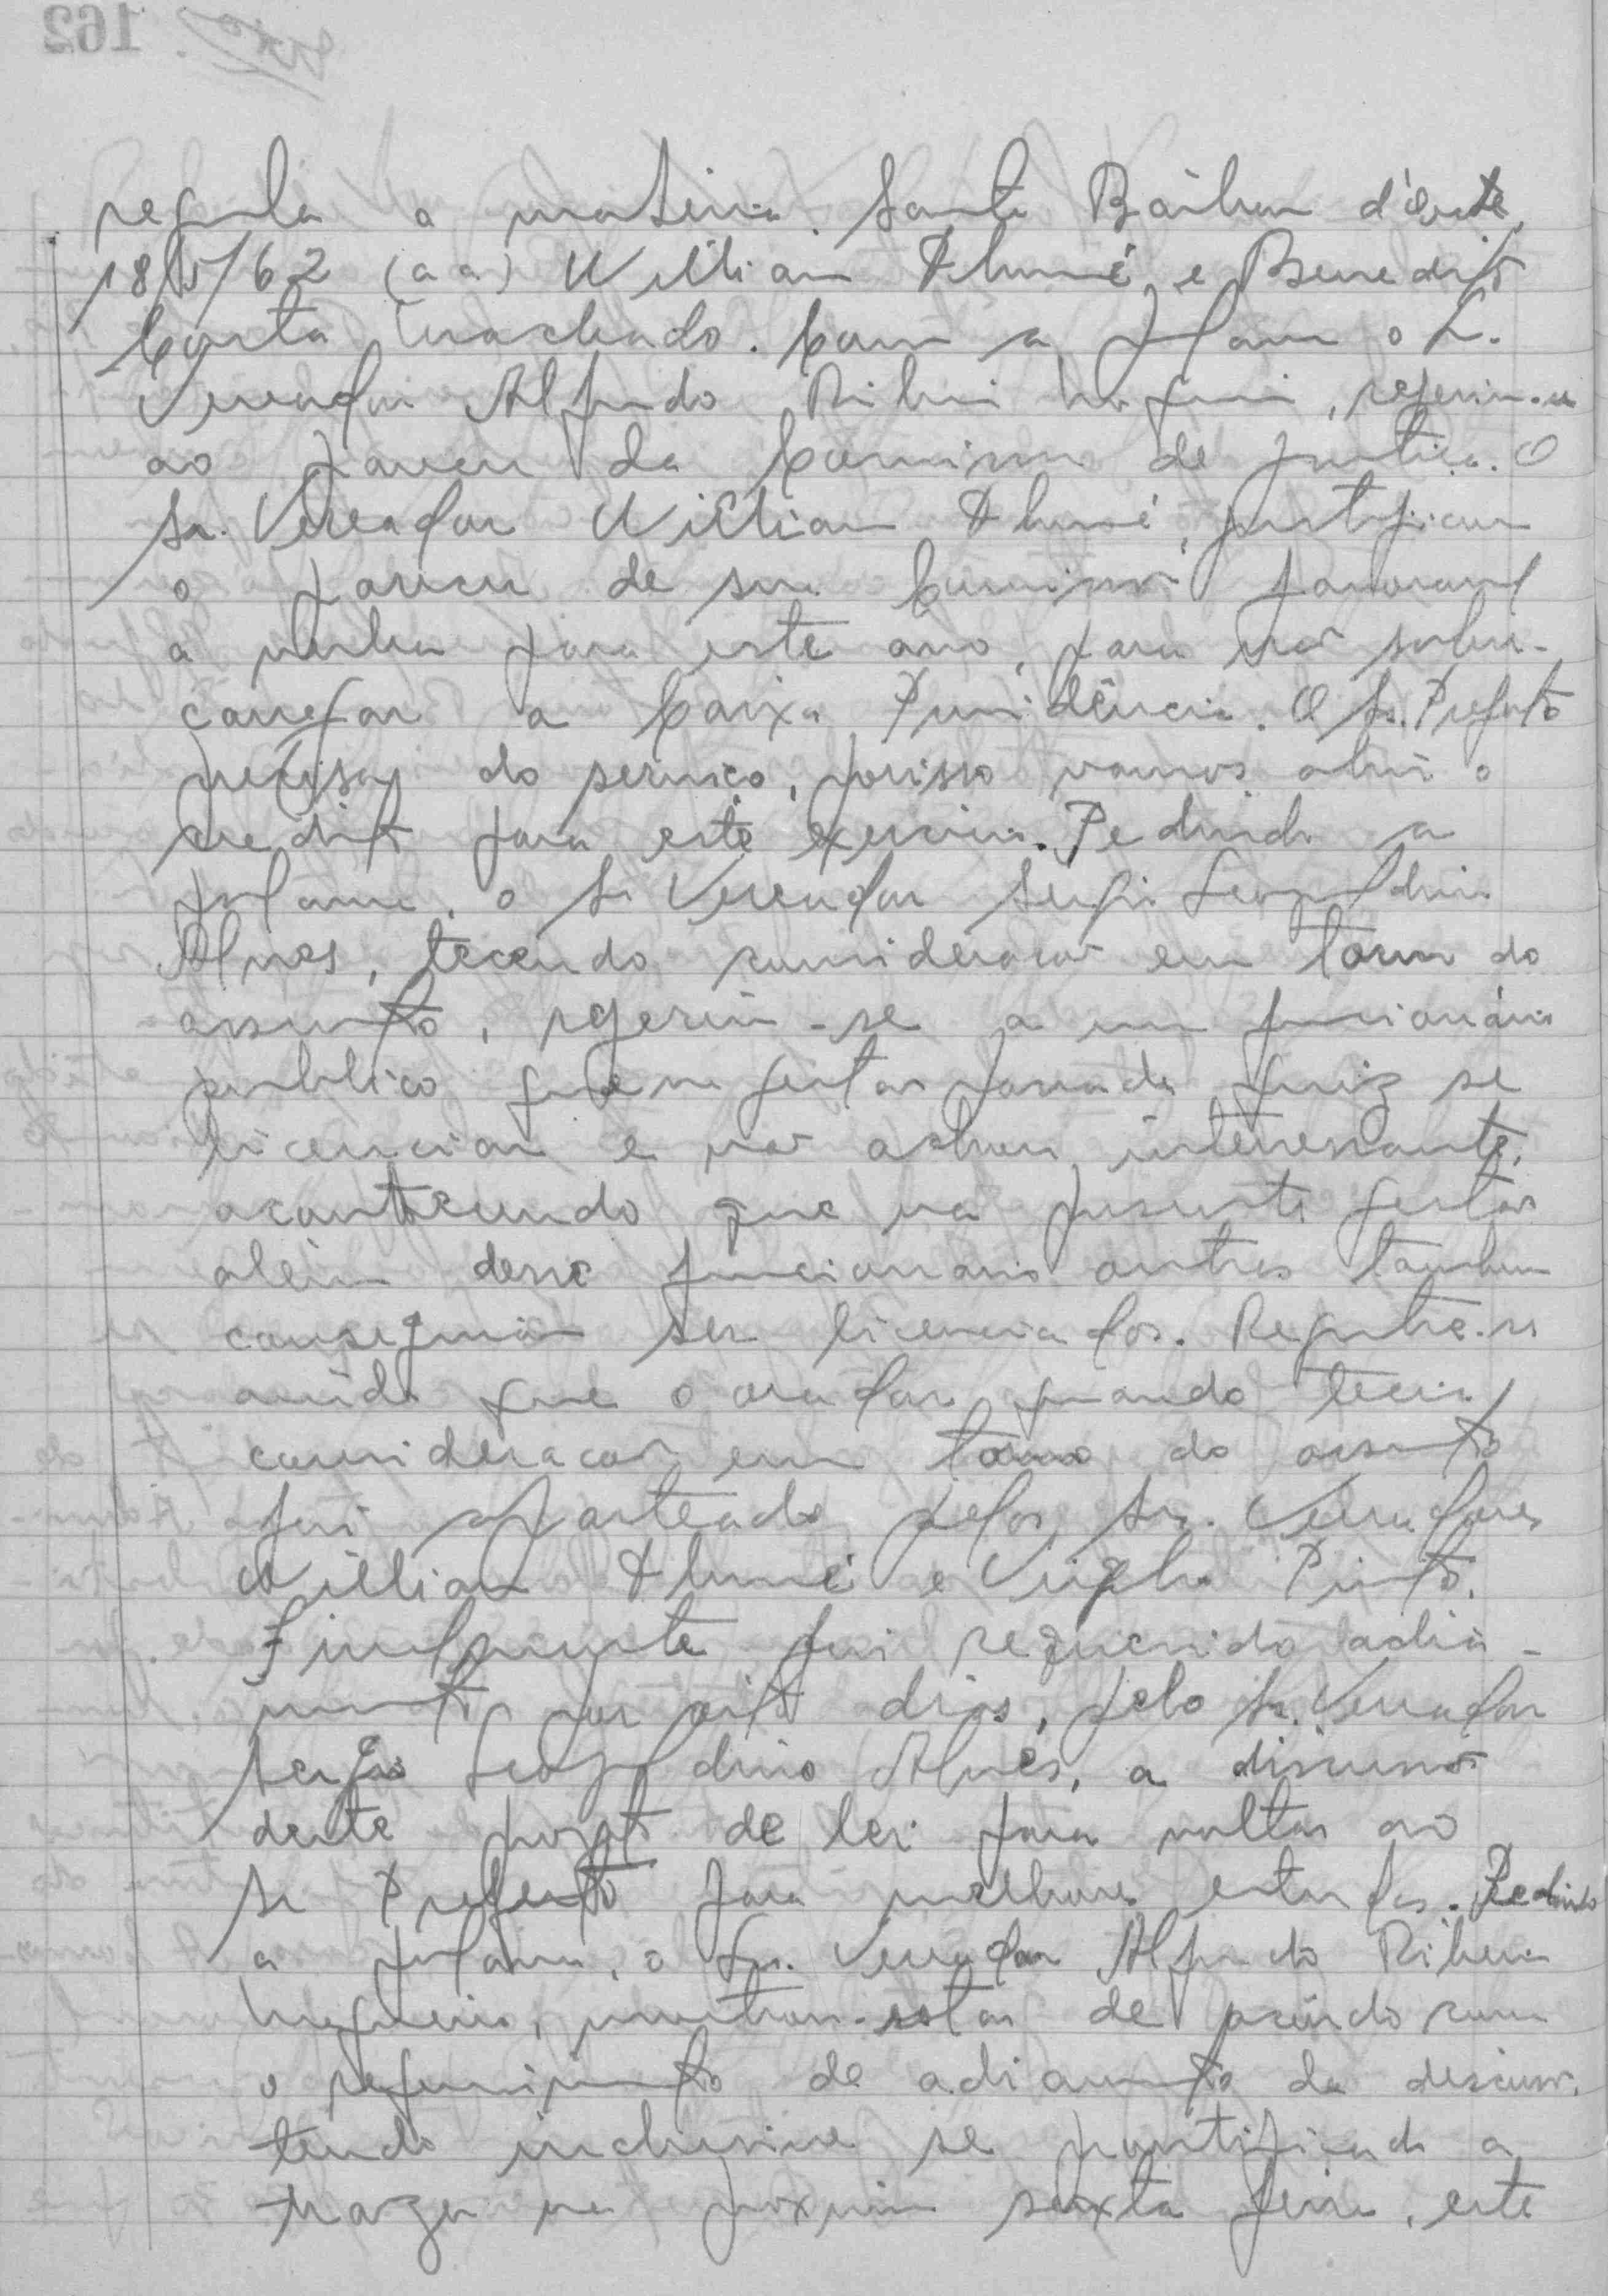 regula a materia. Santa Bárbara d'Oeste,
18/5/62 (a a) Willian Thumé e Benedito
Costa Machado. Com a palavra o Sr.
Vereador Alfredo Ribeiro, referiu-se
ao parecer da Comissão de Justiça. O
Sr. Vereador Willian Thumé, justificou
o parecer de sua Comissão favoravel
a verba para este ano, para não sobre-
carregar a Caixa Previdência. O Sr. Prefeito
precisa do serviço, porisso vamos abrir o
credito para este exercicio. Pedindo a
palavra, o Sr Vereador Sergio Leopoldino
Alves, tecendo consideração em torno do
assunto, referiu-se a um funcionário
publico que na gestão passada quiz se
licenciar e não acharam interessante,
acontecendo que na presente gestão
além desse funcionario outros tambem
conseguiram ser licenciados. Registre-se
ainda que o orador quando tecia
consideração em torno do assunto
foi aparteado pelos Srs. Vereadores
Willian Thumé e Virgilio Pinto.
Finalmente foi requerido adia-
mento por oito dias, pelo Sr. Vereador
Sergio Leopoldino Alves, a discussão
deste projeto de lei para voltar ao
Sr Prefeito para melhores estudos. Pedindo
a palavra, o Sr. Vereador Alfredo Ribeiro
mostrou-se de acôrdo com
o requerimento de adiamento da discussão
tendo inclusive se prontificado a
trazer na proxima sexta feira, este